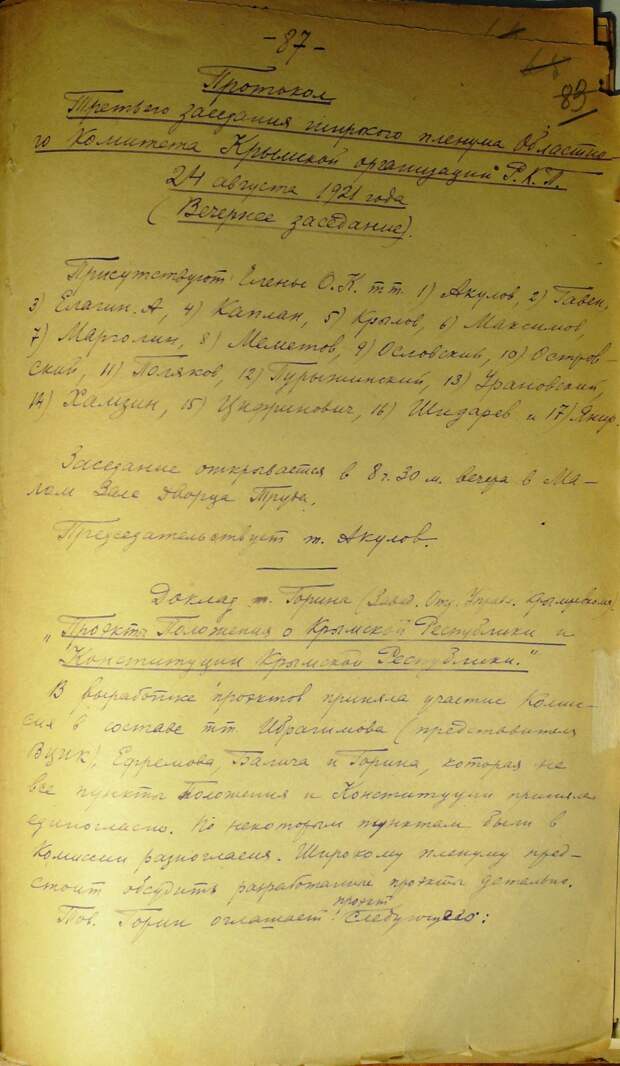 - 87 -
83
Протокол
Третьего заседания широкого пленума Областно-
го Комитета Крымской организации Р.К.П.
24 августа 1921 года
(Вечернее заседание).
Присутствуют: Члены О.К. т.т. 1) Акулов, 2) Гавен,
3) Елагин А, 4) Каплан, 5) Крылов, 6) Максимов,
7) Марголин, 8) Меметов, 9) Ословский, 10) Остров-
ский, 11) Поляков, 12) Пурыжинский, 13) Урановский,
14) Хамзин, 15) Цифринович, 16) Шидарев и 17)
Заседание открывается в 8 ч. 30 м. вечера в Ма-
лом Зале Дворца Труда.
Председательствует т. Акулов.
Доклад т. Горина (Завед. Отд. Управ. Крымревкома)
"Проэкты Положения о Крымской Республики и
Конституции Крымской Республики."
В выработке проэктов приняла участие Комис-
сия в составе т.т. Ибрагимова (представителя
ВЦИК), Ефремова, Балича и Горина, которая не
все пункты Положения и Конституции приняла
единогласно. По некоторым пунктам были в
Комиссии разногласия. Широкому пленуму пред-
стоит обсудить разработанные проэкты детально.
Тов. Горин оглашает проэкт следующего: